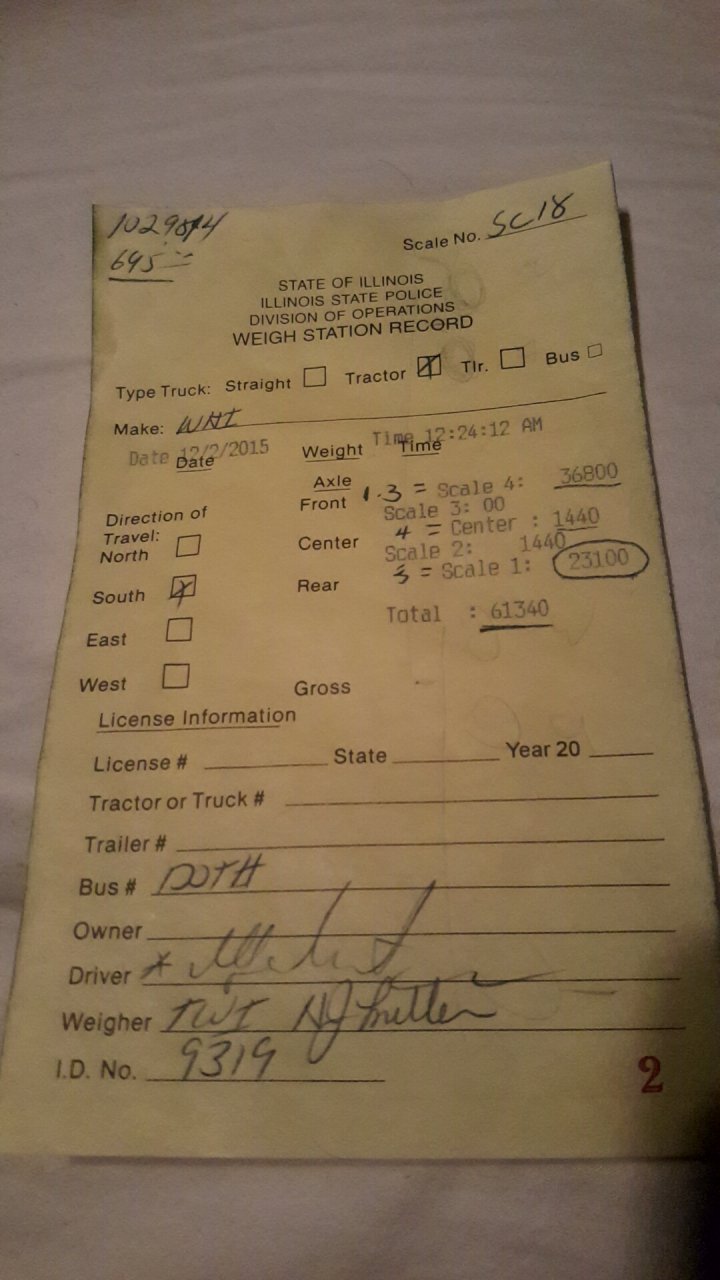 Scale No. SC18
695
STATE OF ILLINOIS
ILLINOIS STATE POLICE
DIVISION OF OPERATIONS
WEIGH STATION RECORD
Type Truck: Straight Tractor X Tlr. Bus
Make:
Date 12/2/2015 Time 12:24:12 AM
Date Weight Time
Axle
Front 1.3 = Scale 4: 36800
Scale 3: 00
Direction of
Travel:
North
Center 4 = Center : 1440
Scale 2: 1440
South X Rear 3 = Scale 1: 23100
Total : 61340
East
West Gross
License Information
License # State Year 20
Tractor or Truck #
Trailer #
Bus # DOTH
Owner
Driver X
Weigher
I.D. No. 9319
2